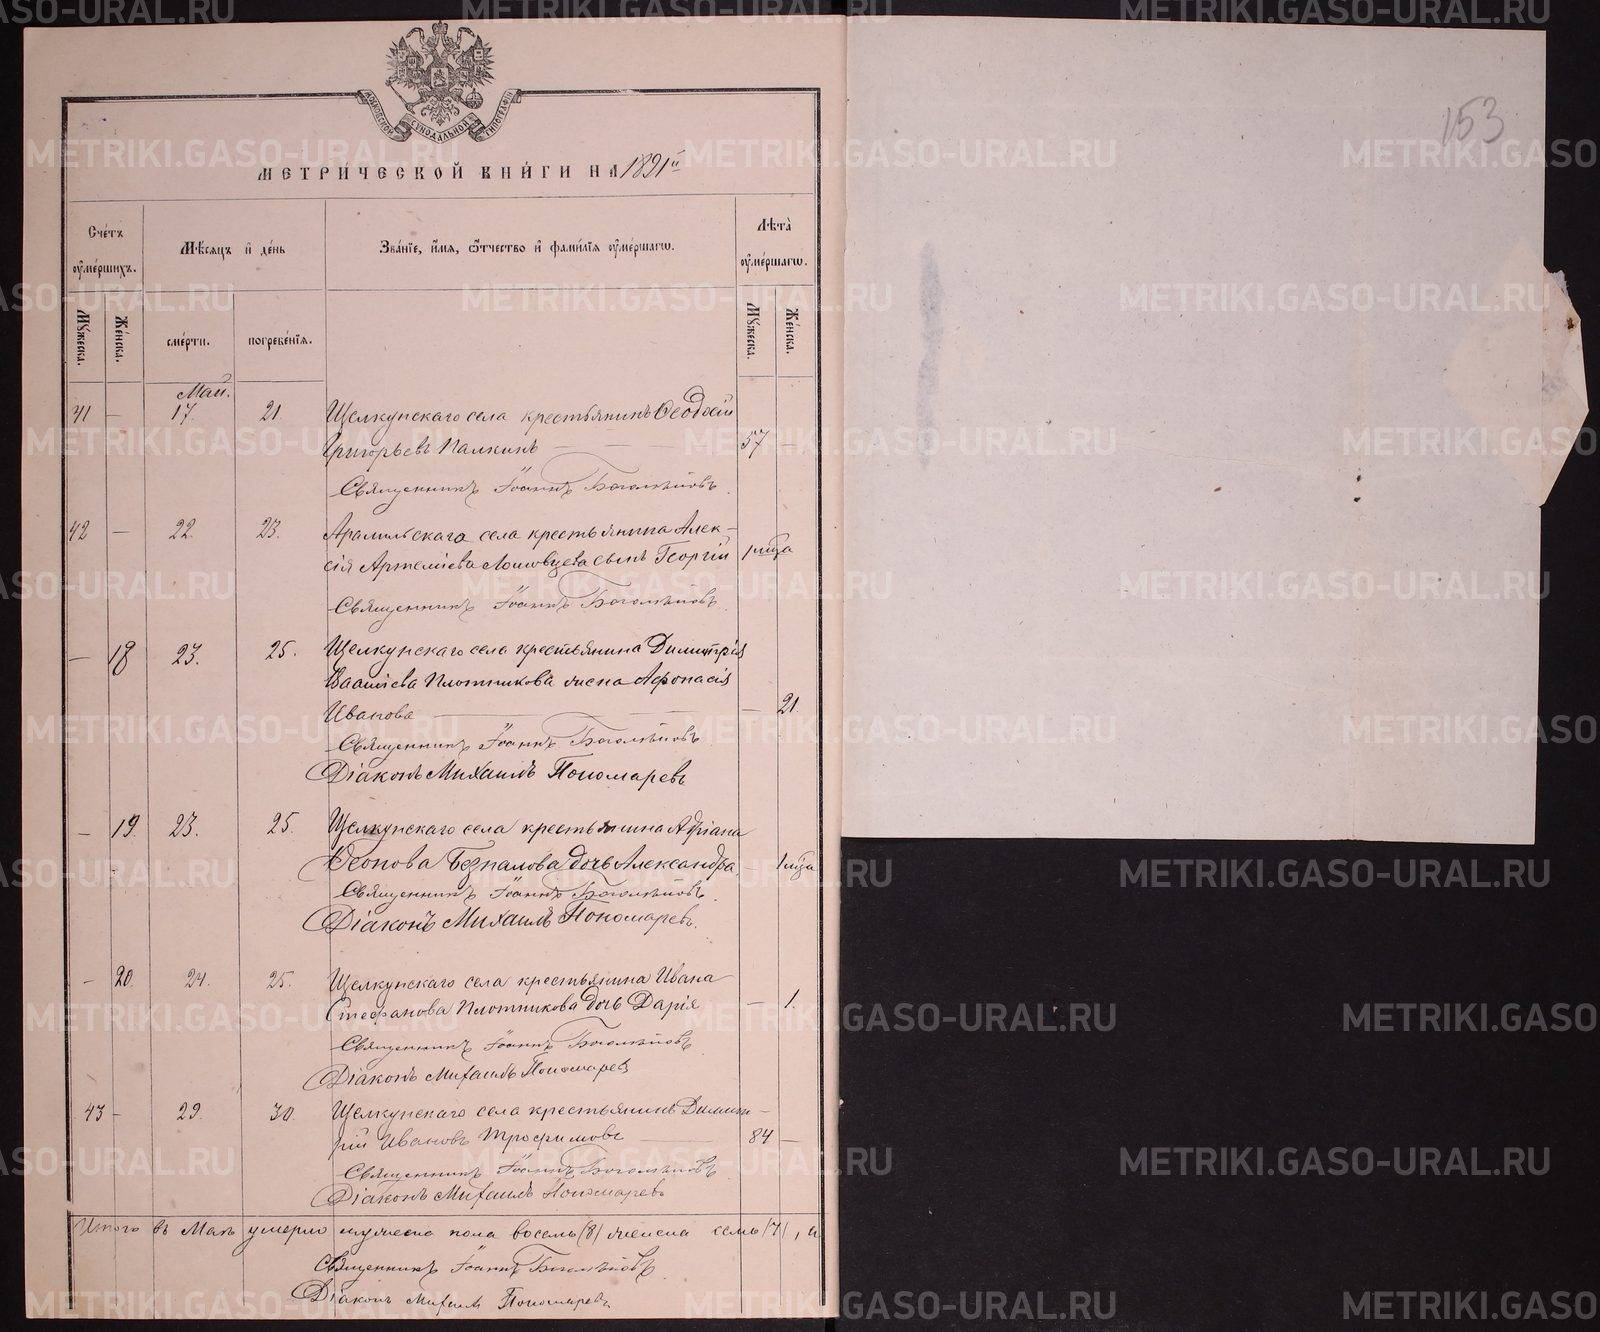 МОСКОВСКОЙ СѴНОДАЛЬНОЙ ТИПОГРАФІИ
МЕТРИЧЕСКОЙ КНИГИ НА 1891 г.
Счетъ умершихъ.
Мѣсяцъ и день
Званіе, имя, отчество и фамилія умершаго.
Лѣта умершаго.
Мужеска.
Женска.
смерти.
погребенія.
Мужеска.
Женска.
Май.
41 — 17. 21. Щелкунскаго села крестьянинъ Ѳеодосій
Григорьевъ Палкинъ — — — 57 —
Священникъ Іоаннъ Боголѣповъ.
42 — 22. 23. Арамильскаго села крестьянина Алек-
сія Артеміева сынъ Георгій 1 м-ца
Священникъ Іоаннъ Боголѣповъ.
— 18 23. 25. Щелкунскаго села крестьянина Димитрія
Плотникова жена Афонасія
Иванова — — 21.
Священникъ Іоаннъ Боголѣповъ
Діаконъ Михаилъ Пономаревъ
— 19. 23. 25. Щелкунскаго села крестьянина Адріана
Безпалова дочь Александра — 1 м-ца
Священникъ Іоаннъ Боголѣповъ.
Діаконъ Михаилъ Пономаревъ.
— 20. 24. 25. Щелкунскаго села крестьянина Ивана
Стефанова Плотникова дочь Дарія — 1.
Священникъ Іоаннъ Боголѣповъ
Діаконъ Михаилъ Пономаревъ
43 — 29. 30. Щелкунскаго села крестьянинъ Димит-
рій Ивановъ Трофимовъ — 84 —
Священникъ Іоаннъ Боголѣповъ
Діаконъ Михаилъ Пономаревъ
Итого въ Маѣ умерло мужеска пола восемь (8) женска семь (7), и
Священникъ Іоаннъ Боголѣповъ
Діаконъ Михаилъ Пономаревъ
153
METRIKI.GASO-URAL.RU